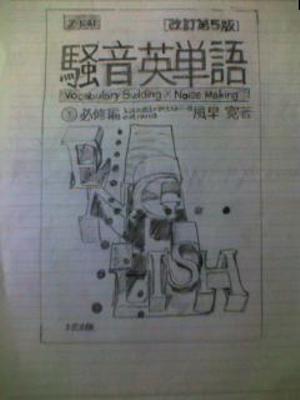 Z-KAI [改訂第5版]
騒音英単語
Vocabulary Building × Noise Making
① 必修編
風早 寛著
ENGLISH